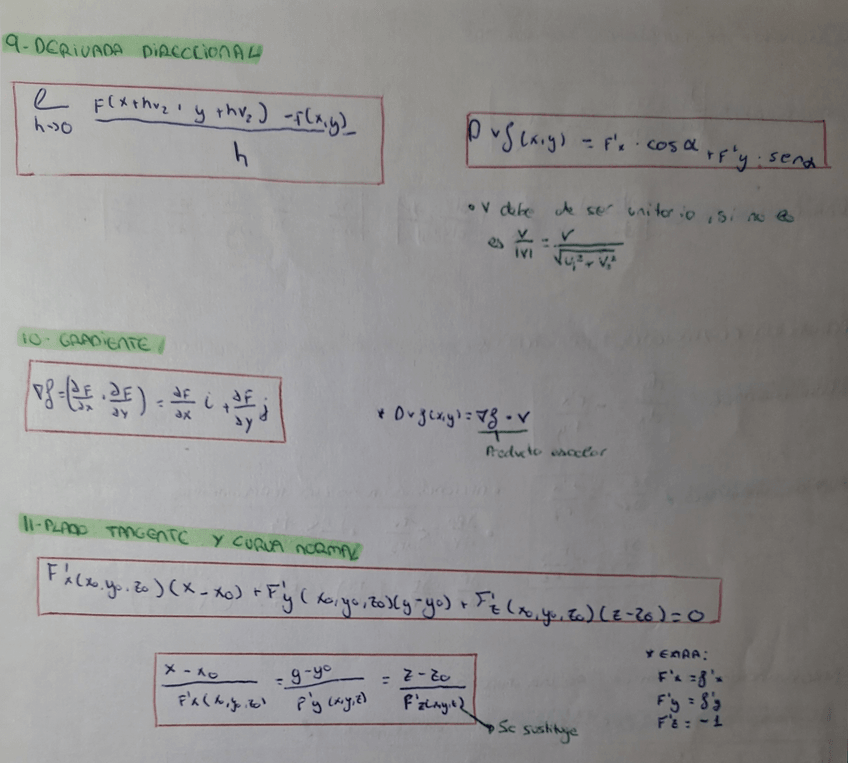 9-DERIVADA DIRECCIONAL
l F(x+hv₂, y+hv₂) -f(x,y)
h→0 h
Dvf(x,y) = F'x · cosα +F'y · senα
• v debe de ser unitario, si no lo
es v/|v| = v/√(v₁²+v₂²)
10- GRADIENTE
∇f=(∂F/∂x, ∂F/∂y) = ∂F/∂x i + ∂F/∂y j
* Dvf(x,y) = ∇f · v
Producto escalar
11-PLANO TANGENTE Y CURVA NORMAL
F'x(x₀,y₀,z₀)(x-x₀) + F'y(x₀,y₀,z₀)(y-y₀) + F'z(x₀,y₀,z₀)(z-z₀)=0
x-x₀/F'x(x₀,y₀,z₀) = y-y₀/F'y(x,y,z) = z-z₀/F'z(x,y,z)
Se sustituye
F'x = f'x
F'y = f'y
F'z = -1